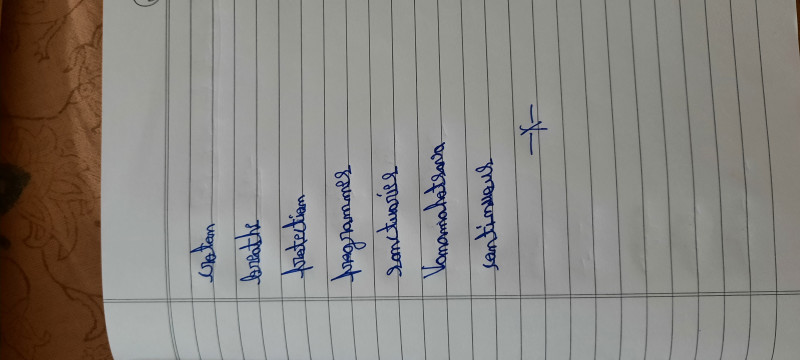 breathe
protection
programmes
sanctuaries
Vanamahotsava
continuous
—x—